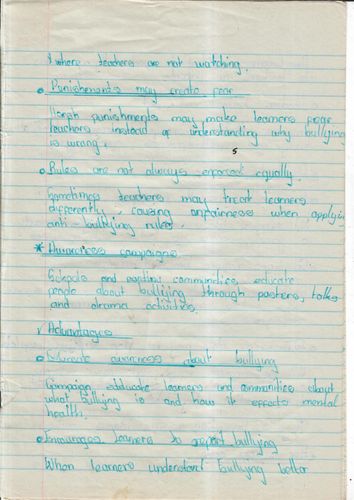 where teachers are not watching.
Punishments may create fear
Harsh punishments may make learners fear
teachers instead of understanding why bullying
is wrong.
5
Rules are not always enforced equally
Sometimes teachers may treat learners
differently, causing unfairness when applying
anti-bullying rules.
* Awareness campaigns
Schools and communities educate
people about bullying through posters, talks
and drama activities.
Advantages
awareness about bullying
Campaign educate learners and communities about
what bullying is and how it effects mental
health.
Encourages learners to report bullying
When learners understand bullying better